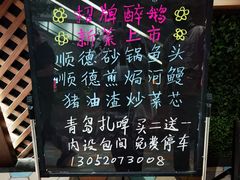 招牌醉鹅
新菜上市
顺德砂锅鱼头
顺德煎焗河鳗
猪油渣炒菜芯
青岛扎啤买二送一
内设包间 免费停车
13052073008